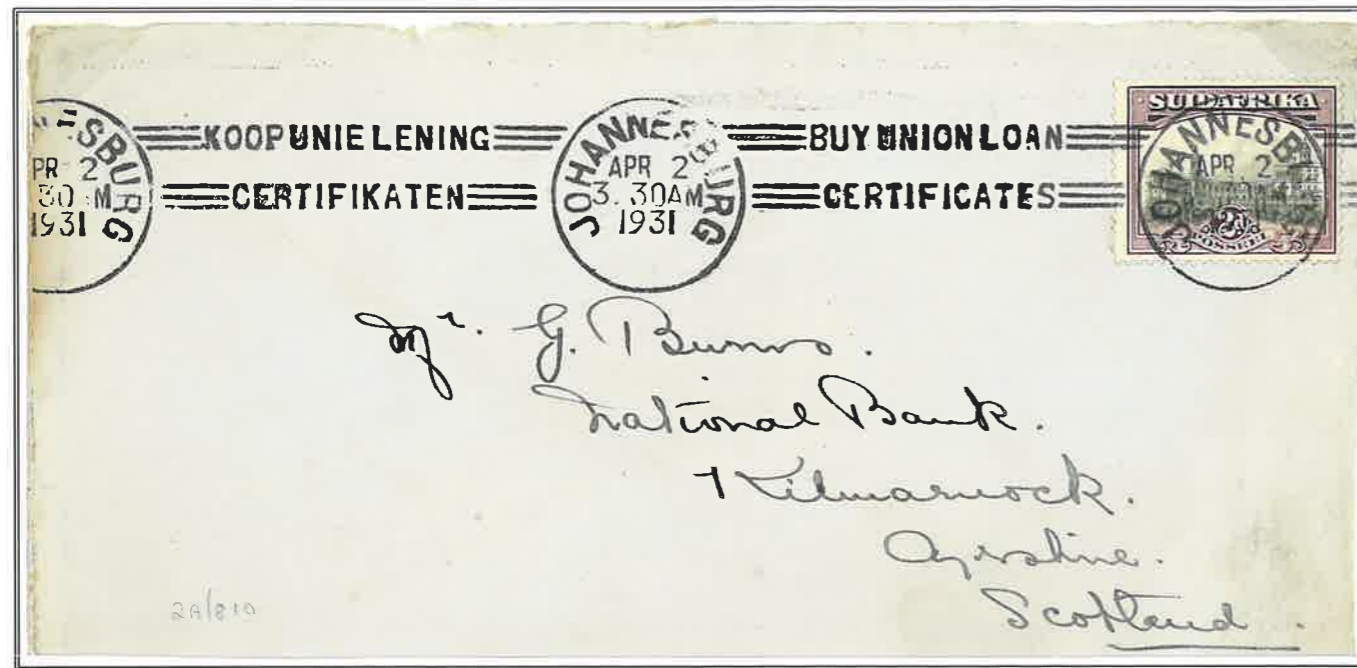 ESBURG
PR 2
30 M
1931
KOOP UNIE LENING
CERTIFIKATEN
JOHANNESBURG
APR 2
3.30AM
1931
BUY UNION LOAN
CERTIFICATES
SUIDAFRIKA
JOHANNESB
APR 2
2D
POSSEEL
Mr. G. Burns.
National Bank.
Kilmarnock.
Ayrshire.
Scotland.
2A/810